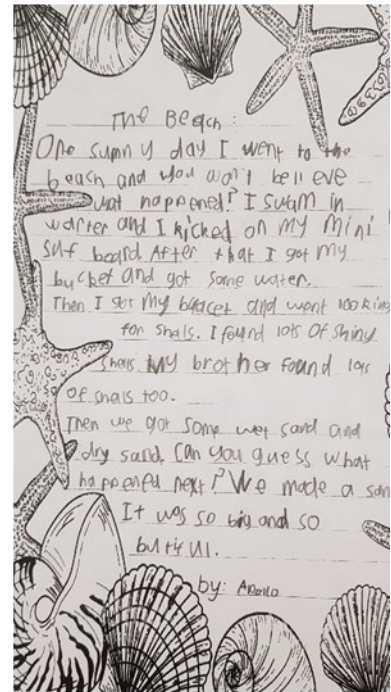 The Beach:
One sunny day I went to the
beach and you won't beli eve
wat happened? I swam in
warter and I kicked on my mini
suf board After that I got my
bucket and got some water.
Then I got my bucet and went looking
for shals. I found lots of shiny
shals My brother found lots
of shals too.
Then we got some wet sand and
dry sand. Can you guess what
happened next? We made a san
It was so big and so
butiful.
by: